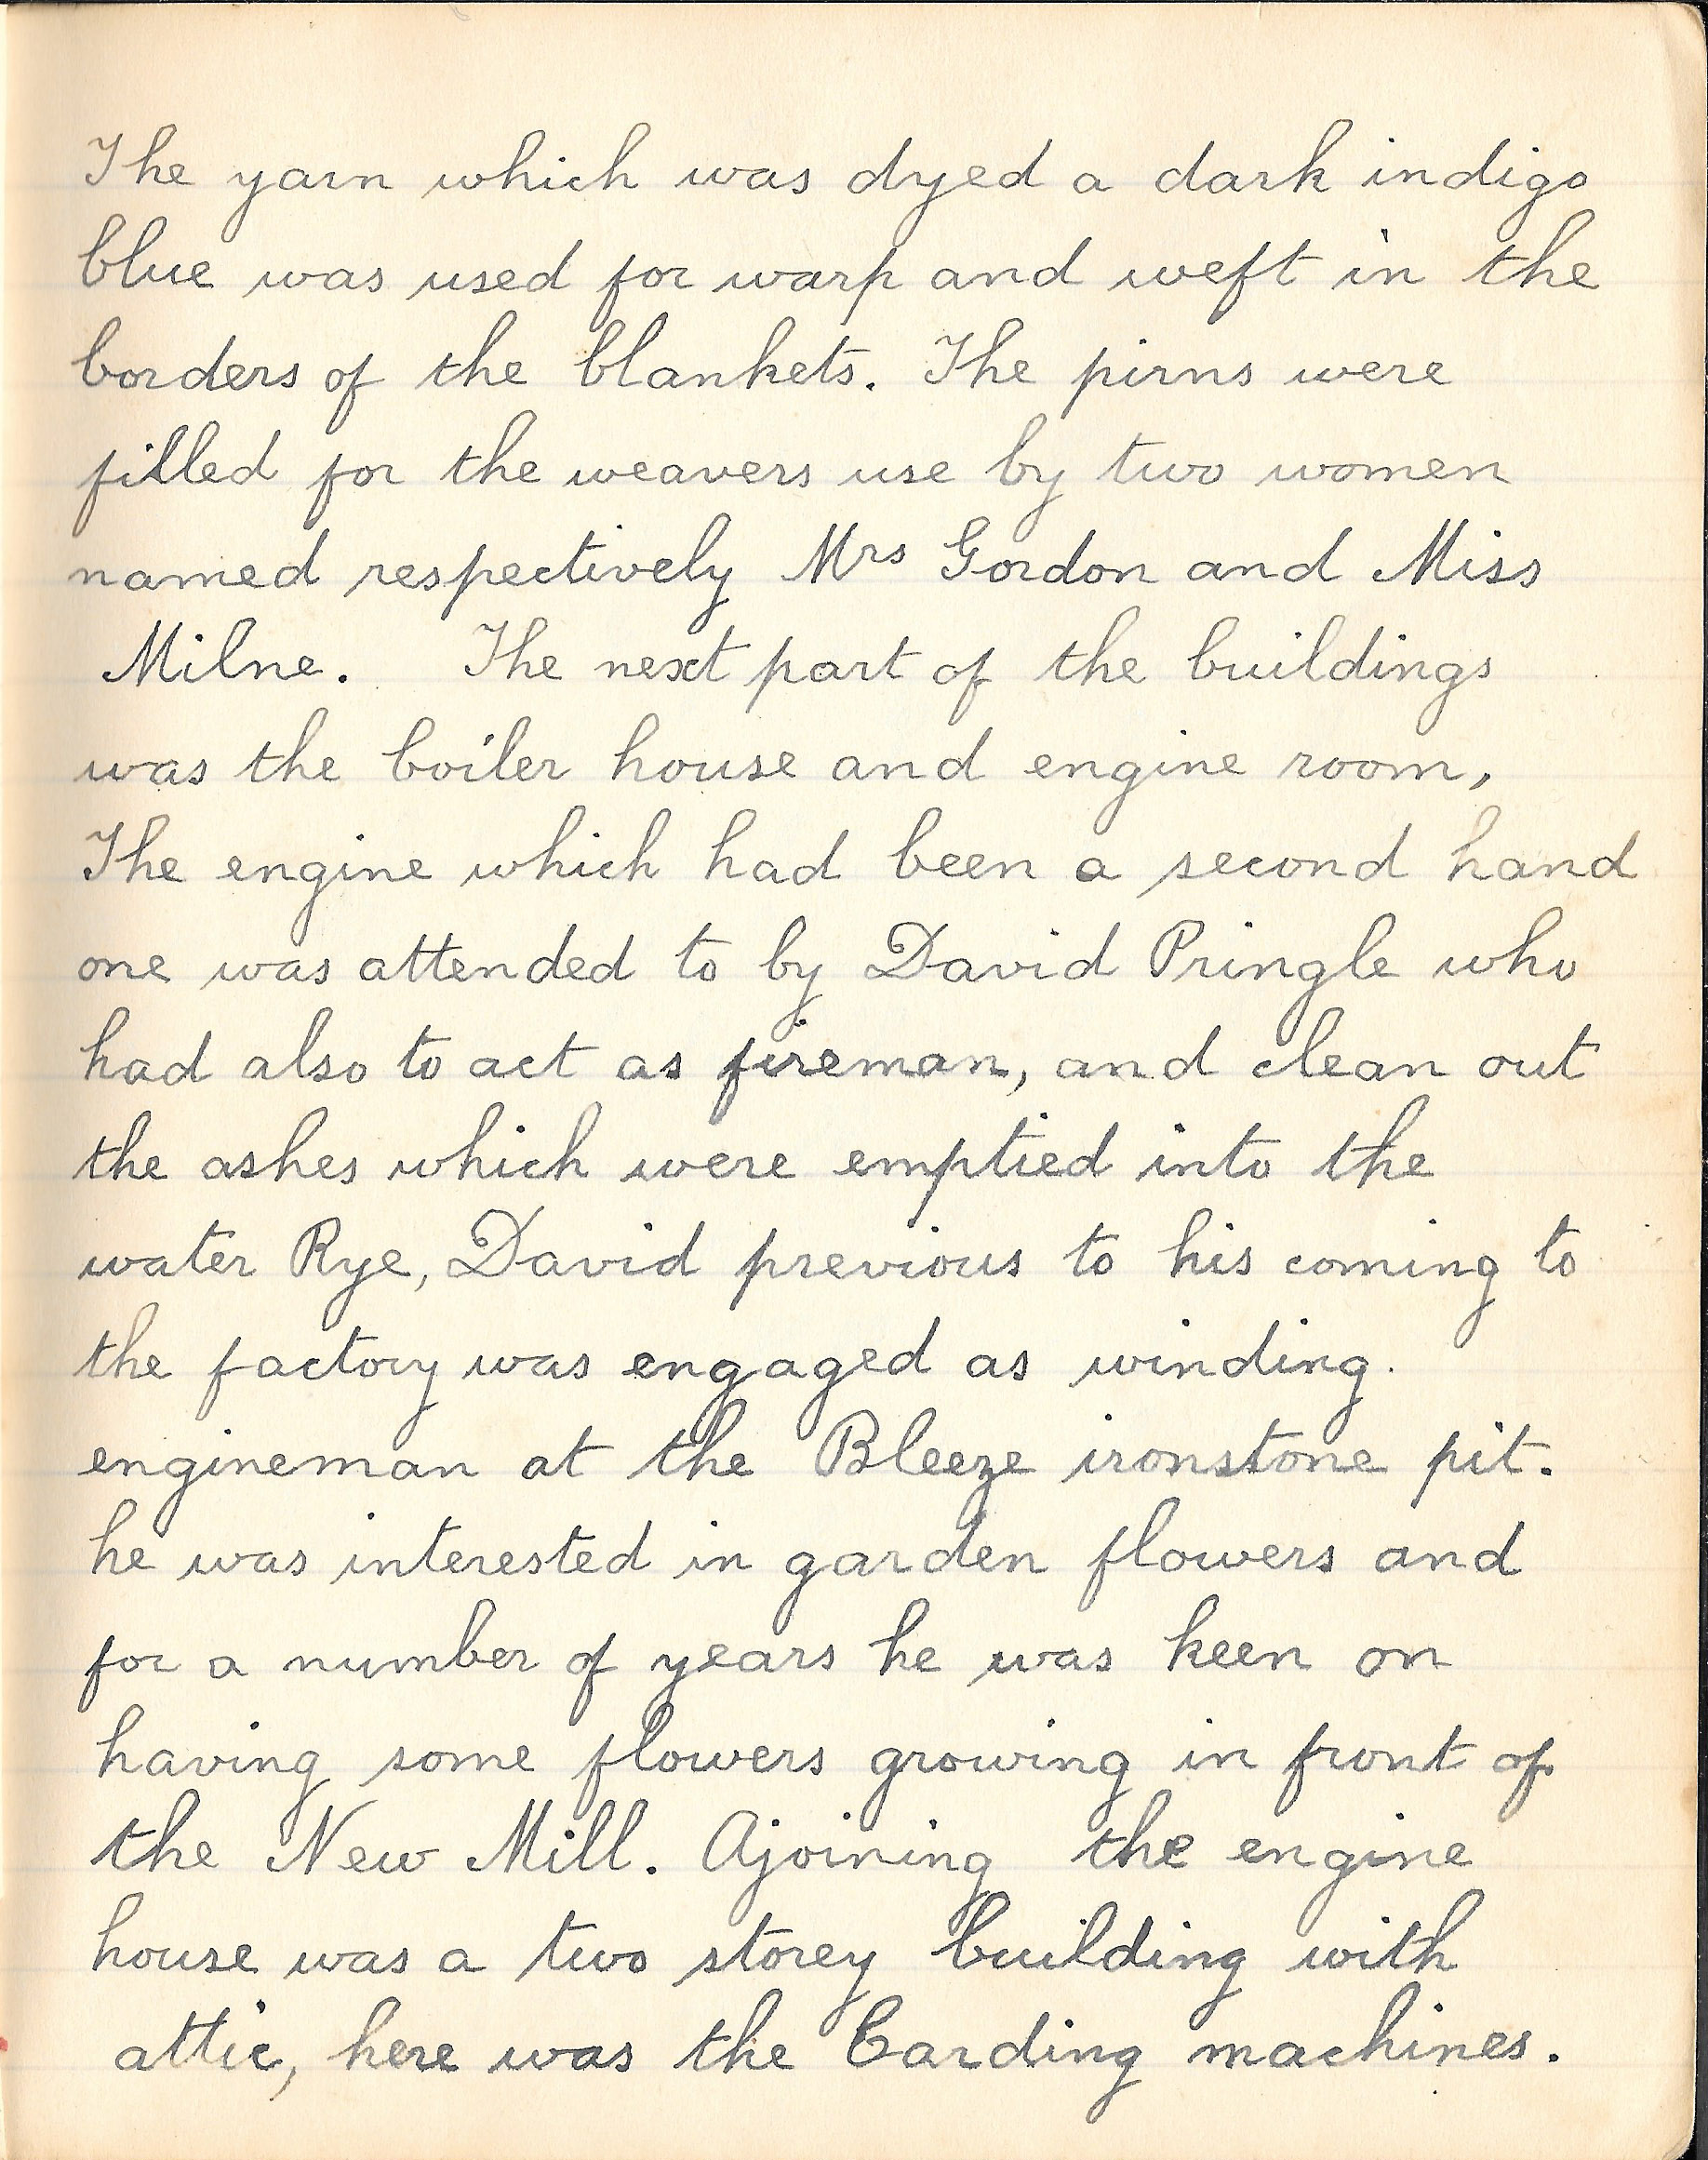 The yarn which was dyed a dark indigo
blue was used for warp and weft in the
borders of the blankets. The pirns were
filled for the weavers use by two women
named respectively Mrs Gordon and Miss
Milne. The next part of the buildings
was the boiler house and engine room,
The engine which had been a second hand
one was attended to by David Pringle who
had also to act as fireman, and clean out
the ashes which were emptied into the
water Rye, David previous to his coming to
the factory was engaged as winding.
engineman at the Bleeze ironstone pit.
he was interested in garden flowers and
for a number of years he was keen on
having some flowers growing in front of
the New Mill. Ajoining the engine
house was a two storey building with
attic, here was the Carding machines.